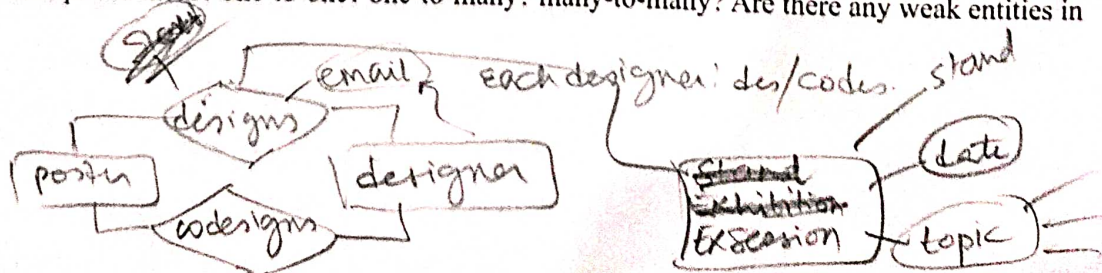 one to one? one to many? many-to-many? Are there any weak entities in
email
each designer: des/codes.
stand
designs
poster
designer
codesigns
Stand
Exhibition
ExSession
date
topic